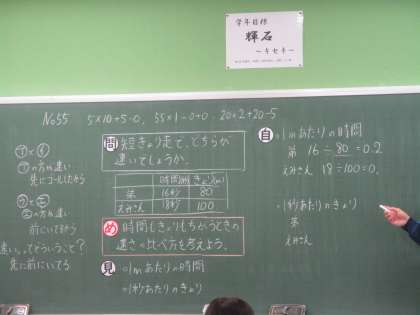 学年目標
輝石
～キセキ～
No55 5×10+5-0、 55×1-0+0、 20×2+20-5
ア と イ
アの方が速い
先にゴールしたから
ウ と エ
エの方が速い
前にいてるから
速い。ってどういうこと?
先に前にいてる
問 短きょり走で、どちらが
速いでしょうか。
時間(秒) きょり(m)
弟 16秒 80
えみさん 18秒 100
め 時間もきょりもちがうときの
速さの比べ方を考えよう。
見 ＝1mあたりの時間
＝1秒あたりのきょり
自 ＝1mあたりの時間
弟 16÷80=0.2
えみさん 18÷100=0.
＝1秒あたりのきょり
弟
えみさん